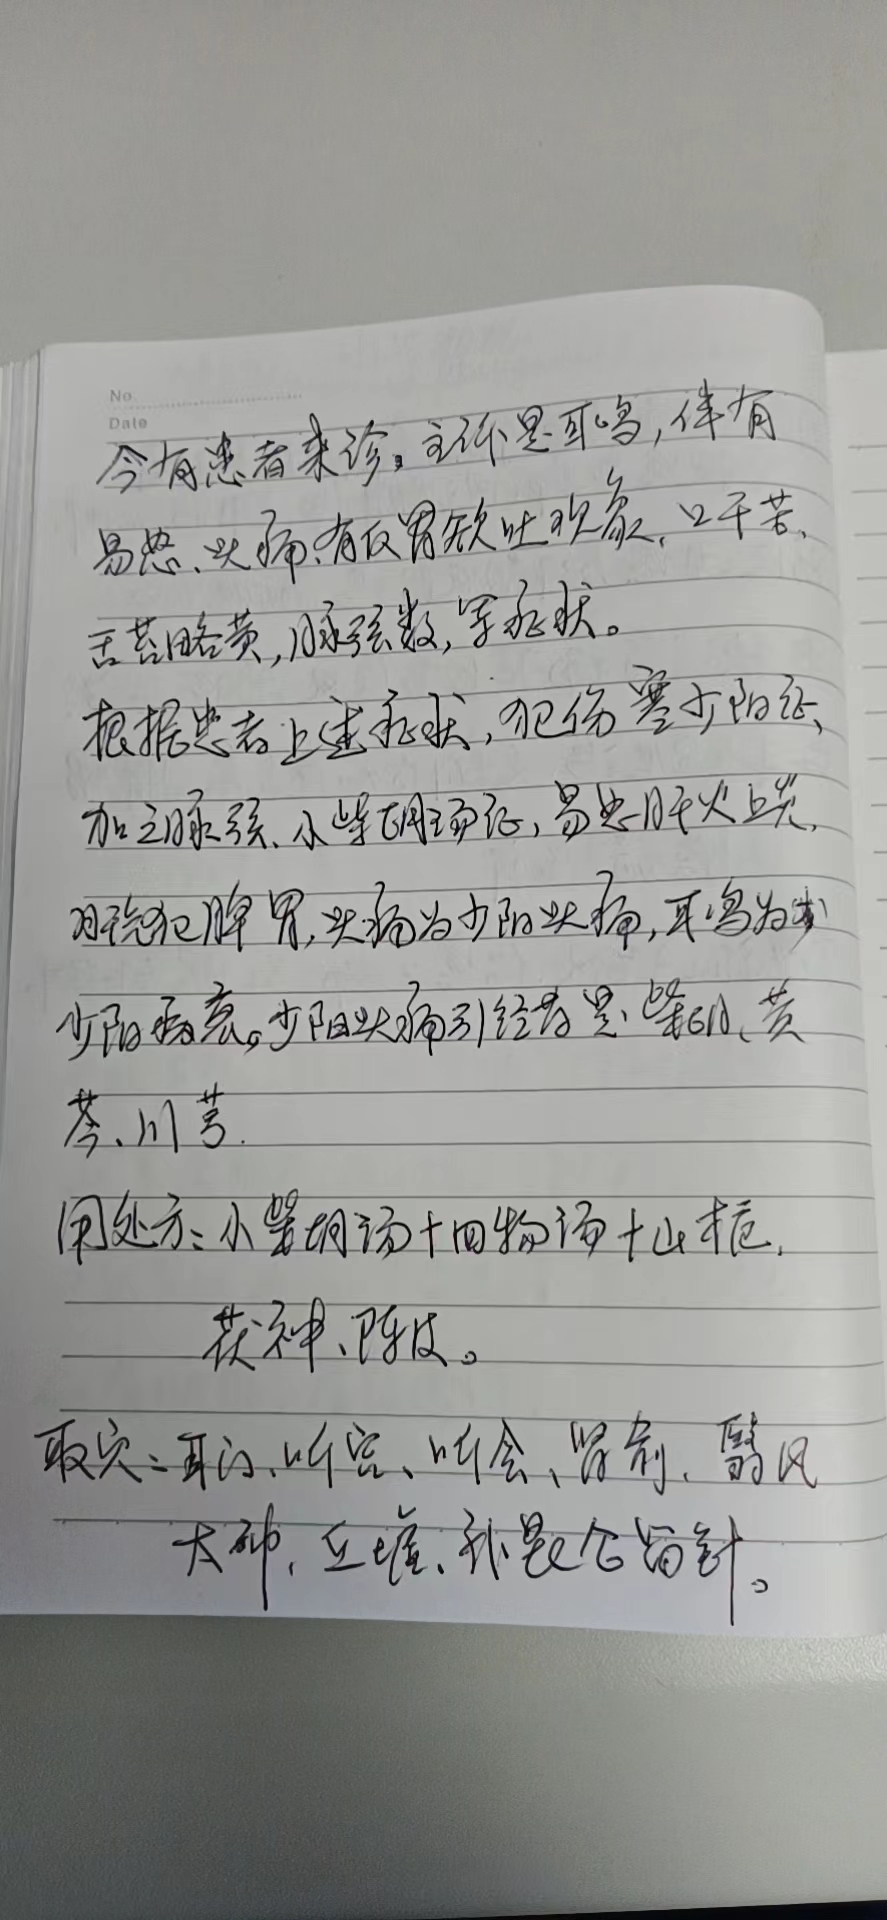 No
Date
今有患者来诊。主诉是耳鸣，伴有
易怒、头痛、有反胃欲吐现象、口干苦、
舌苔略黄，脉弦数，等症状。
根据患者上述症状，犯伤寒少阳证、
加之脉弦、小柴胡汤证，易怒肝火上炎，
犯脾胃，头痛为少阳头痛，耳鸣为
少阳病衰。少阳头痛引经药是：柴胡、黄
芩、川芎.
用处方：小柴胡汤＋四物汤＋山栀，
茯神、陈皮。
取穴：耳门、听宫、听会、肾俞、翳风
太冲、丘墟、留针。